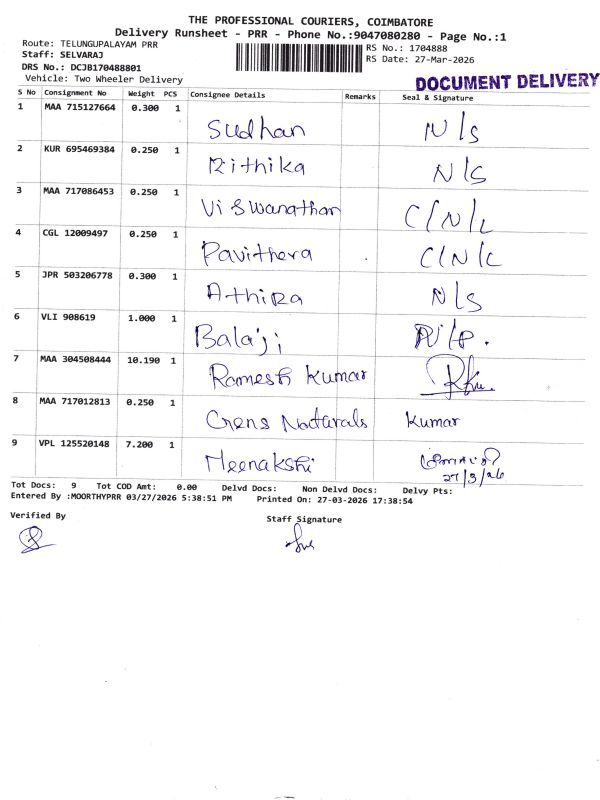 THE PROFESSIONAL COURIERS, COIMBATORE
Delivery Runsheet - PRR - Phone No.:9047080280 - Page No.:1
Route: TELUNGUPALAYAM PRR RS No.: 1704888
Staff: SELVARAJ RS Date: 27-Mar-2026
DRS No.: DCJB170488801
Vehicle: Two Wheeler Delivery DOCUMENT DELIVERY
S No Consignment No Weight PCS Consignee Details Remarks Seal & Signature
1 MAA 715127664 0.300 1 Sudhan N/S
2 KUR 695469384 0.250 1 Rithika N/S
3 MAA 717086453 0.250 1 Viswanathan C/N/L
4 CGL 12009497 0.250 1 Pavithera C/N/C
5 JPR 503206778 0.300 1 Athira N/S
6 VLI 908619 1.000 1 Balaji
7 MAA 304508444 10.190 1 Ramesh Kumar
8 MAA 717012813 0.250 1 Naturals Kumar
9 VPL 125520148 7.200 1 Meenakshi
27/3/26
Tot Docs: 9 Tot COD Amt: 0.00 Delvd Docs: Non Delvd Docs: Delvy Pts:
Entered By :MOORTHYPRR 03/27/2026 5:38:51 PM Printed On: 27-03-2026 17:38:54
Verified By Staff Signature